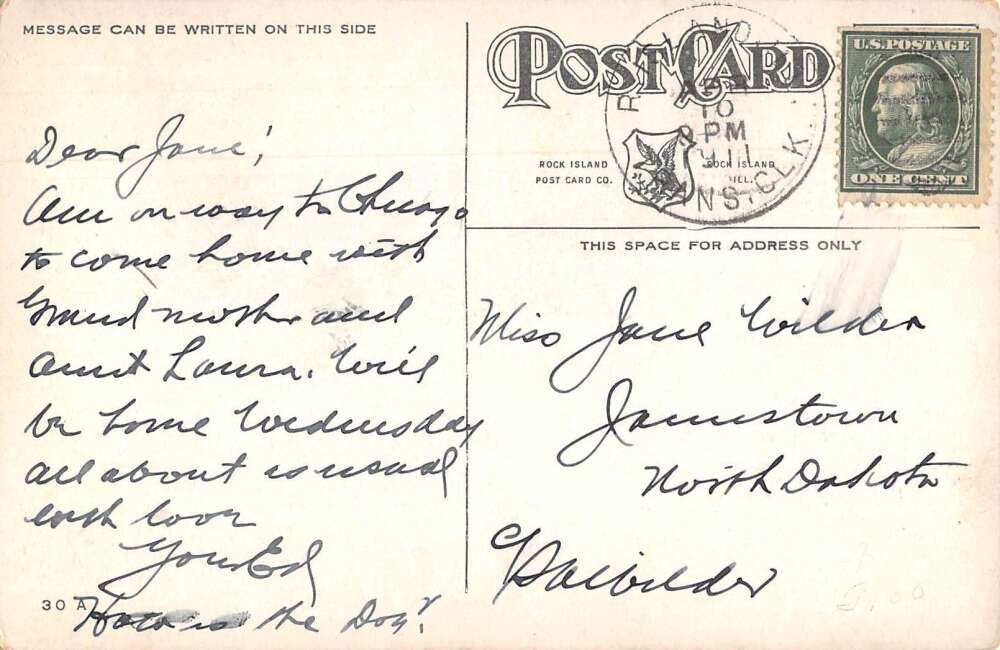 MESSAGE CAN BE WRITTEN ON THIS SIDE
POST CARD
ROCK ISLAND POST CARD CO.
ROCK ISLAND ILL.
10
PM
INS. CLK.
U.S. POSTAGE
ONE CENT
Dear Jane!
Am on way to Chicago
to come home with
Grand mother and
Aunt Laura. We'll
be home Wednesday
all about as usual
with love
Your Ed
How is the Dog?
30 A
THIS SPACE FOR ADDRESS ONLY
Miss Jane Wilder
Jamestown
North Dakota